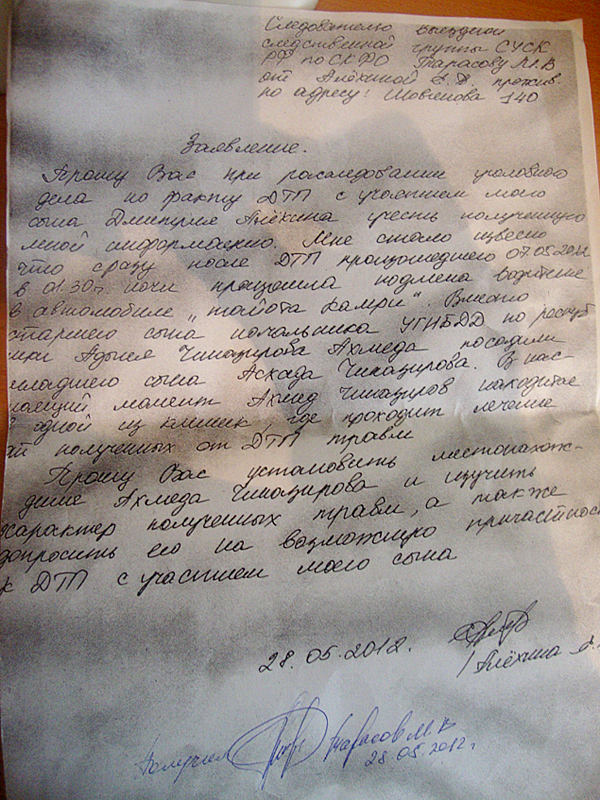 Следователю выездной
следственной группы СУСК
РФ по СКФО Тарасову М.В
от Алёхиной Е.Д. прожив.
по адресу: Шовгенова 140
Заявление.
Прошу Вас при расследовании уголовного
дела по факту ДТП с участием моего
сына Дмитрия Алёхина учесть полученную
мной информацию. Мне стало извесно
что сразу после ДТП произошедшего 07.05.2012
в 01.30г. ночи произошла подмена водителя
в автомобиле „тойота камри". Вместо
старшего сына начальника УГИБДД по респуб
лики Адыгея Чиназирова Ахмеда посадили
младшего сына Аскада Чиназирова. В нас-
тоящий момент Ахмед Чиназиров находится
в одной из клиник, где проходит лечение
ай полученных от ДТП травм
Прошу Вас установить местонахож-
дение Ахмеда Чиназирова и изучить
характер полученных травм, а также
допросить его на возможную причастнос
к ДТП с участием моего сына
28.05.2012.
/Алёхина
Получил Тарасов М.В
28.05.2012г.